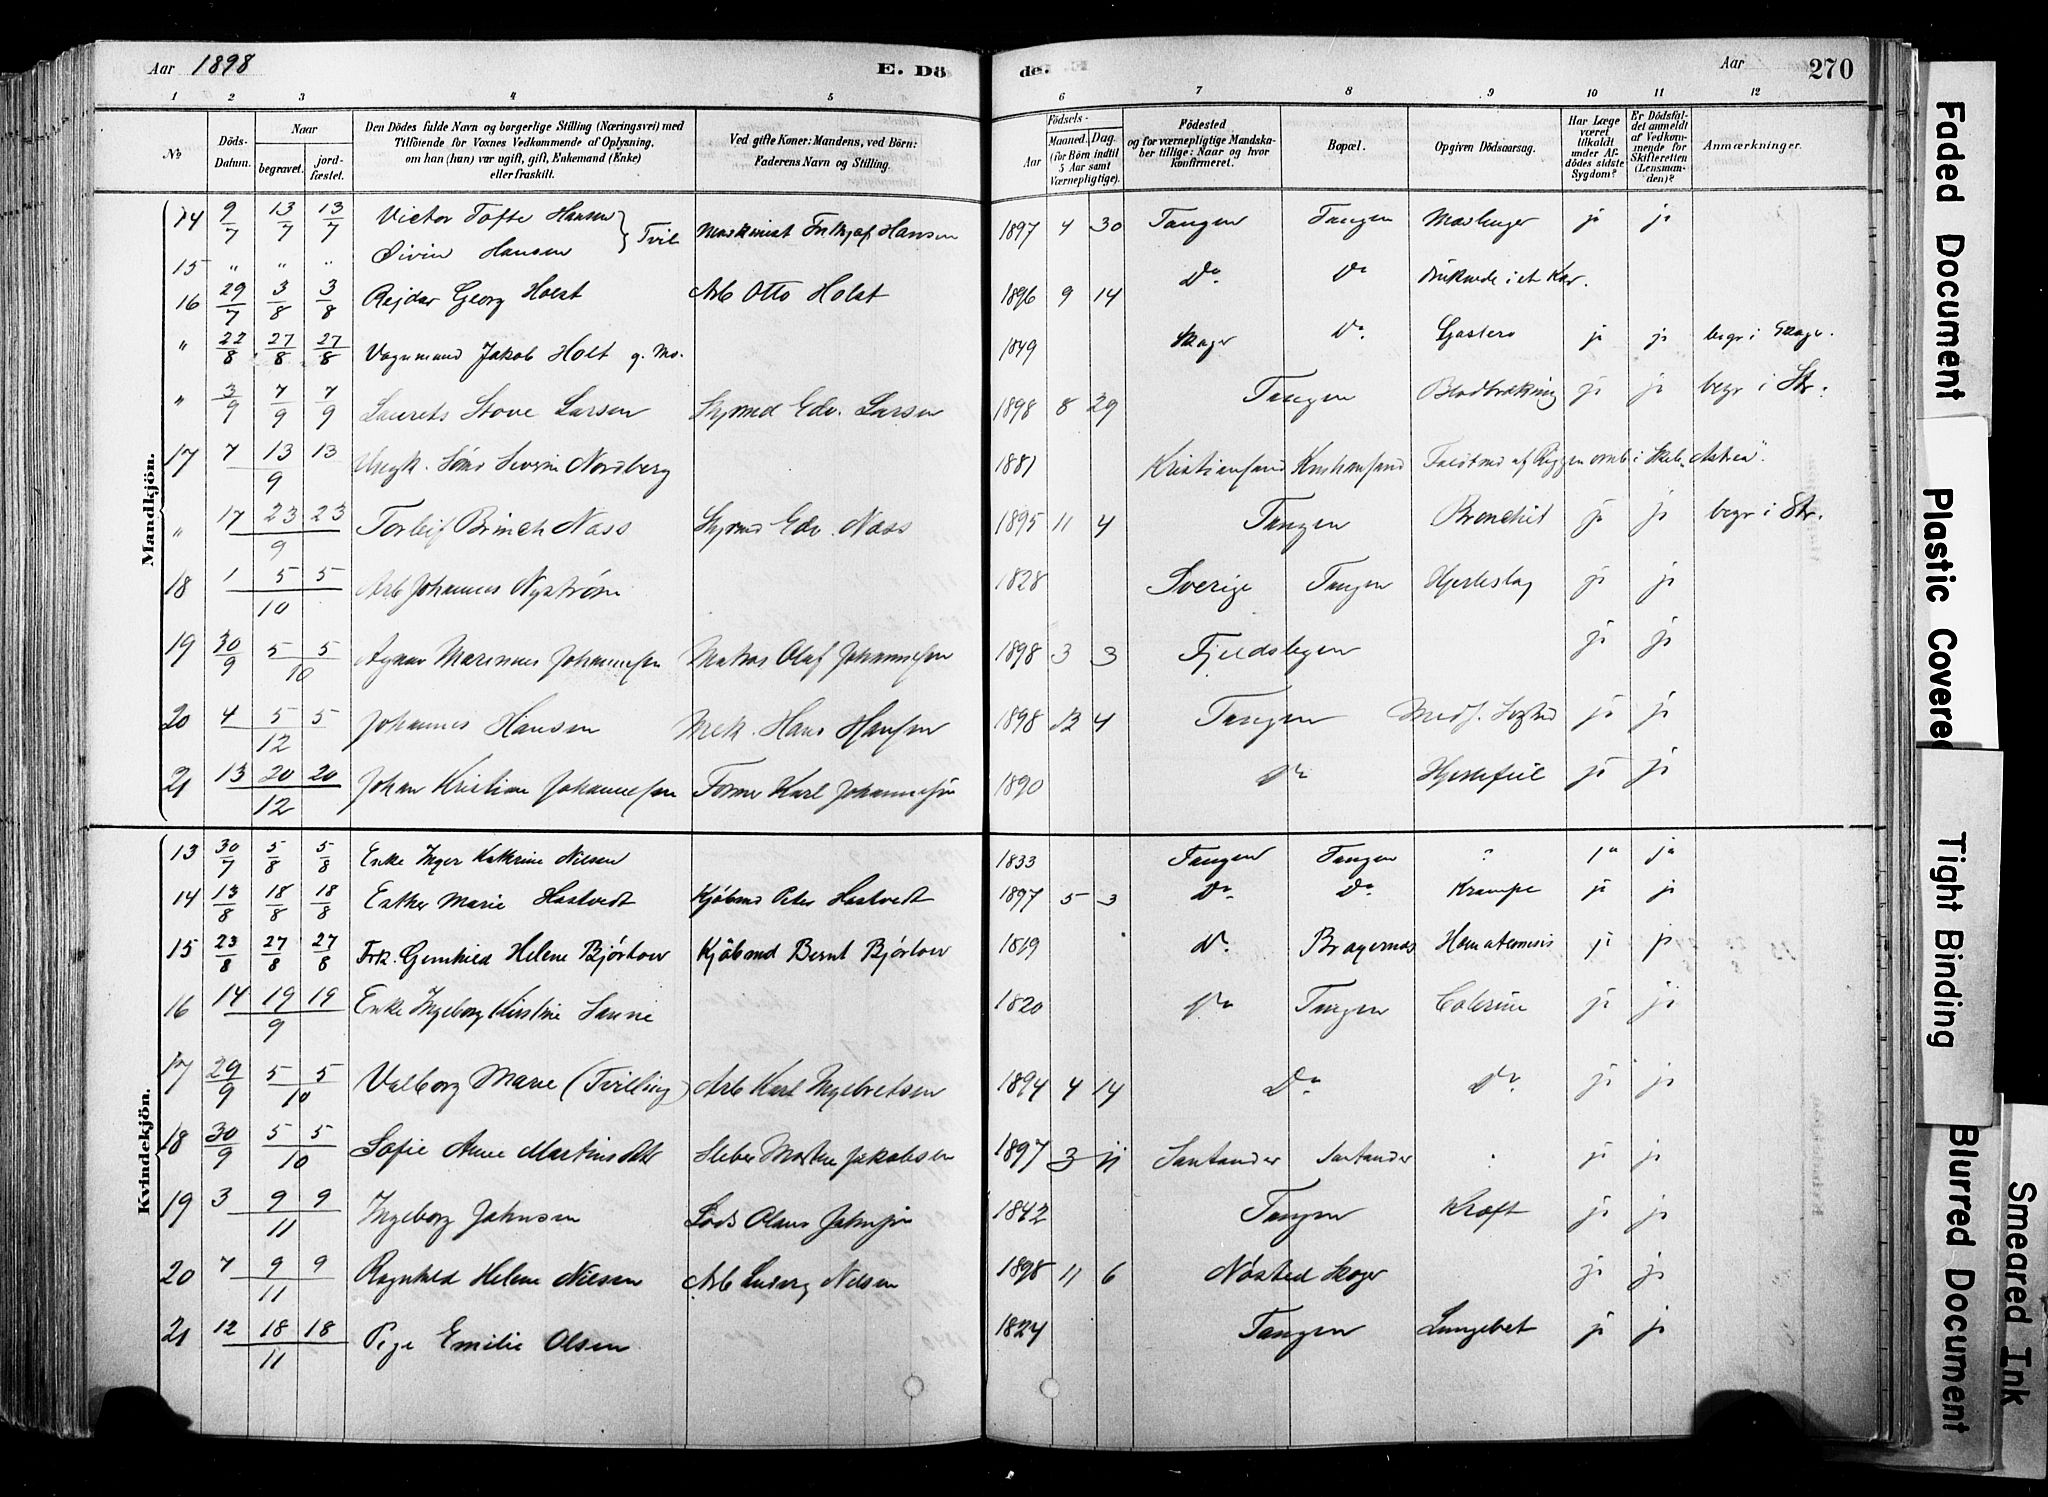 Aar 1898 E. Dö de. Aar 270
1 2 3 4 5 6 7 8 9 10 11 12
No Döds-Datum. Naar begravet. jord-fæstet. Den Dödes fulde Navn og borgerlige Stilling (Næringsvei) med Tilföiende for Voxnes Vedkommende af Oplysning, om han (hun) var ugift, gift, Enkemand (Enke) eller fraskilt. Ved gifte Koner: Mandens, ved Börn: Faderens Navn og Stilling. Födsels- Aar Maaned. Dag. (for Börn indtil 5 Aar samt Værnepligtige). Födested og for værnepligtige Mandska-ber tillige: Naar og hvor konfirmeret. Bopæl. Opgiven Dödsaarsag. Har Læge været tilkaldt under Af-dödes sidste Sygdom? Er Dödsfal-det anmeldt af Vedkom-mende for Skifteretten (Lensman-den)? Anmærkninger.
Mandkjön.
14 9/7 13/7 13/7 Victor Tofte Hansen } Tvil Maskinist Fritjof Hansen 1897 4 30 Tangen Tangen ja ja
15 " " " Øivin Hansen Do Do
16 29/7 3/8 3/8 Rejdar Georg Holst Arb Otto Holst 1896 9 14 Druknede i et Kar.
" 22/8 27/8 27/8 Vognmand Jakob Holt g. Ma. 1849 Skoger Do ja ja begr i Skoger.
" 3/9 7/9 7/9 Laurets Stove Larsen Styrmd Edv. Larsen 1898 8 29 Tangen ja ja begr i Str.
17 7 13 13 9 Ungk. Sømd Severin Nordberg 1881 Kristiansand Kristiansand
" 17 23 23 9 Torleif Brinch Nass Styrmd Edv. Nass 1895 11 4 Tangen Bronchit ja ja begr i Str.
18 1 5 5 10 Arb Johannes Nystrøm 1828 Sverige Tangen Hjerteslag ja ja
19 30/9 5 5 10 Marinus Johannesen Matros Olaf Johannesen 1898 3 3 ja ja
20 4 5 5 12 Johannes Hansen Mek. Hans Hansen 1898 12 4 Tangen Medf. ja ja
21 13 20 20 12 Johan Kristian Johannesen Former Karl Johannesen 1890 Do Hjertefeil ja ja
Kvindekjön.
13 30/7 5/8 5/8 Enke Inger Kathrine Nilsen 1833 Tangen Tangen ? ja ja
14 13/8 18/8 18/8 Esther Marie Hastvedt Kjöbmd Peter Hastvedt 1897 5 3 Do Do Krampe ja ja
15 23/8 27/8 27/8 Frk. Gunhild Helene Bjørkov Kjöbmd Bernt Bjørkov 1819 Do Bragernas Hæmatemesis ja ja
16 14 19 19 9 Enke Ingeborg Kirstine Sanne 1820 Do Tangen Colerine ja ja
17 29/9 5 5 10 Valborg Marie (Tvilling) Arb Karl Ingebretsen 1894 4 14 Do Do ja ja
18 30/9 5 5 10 Sofie Anne Martinsdtr Jakobsen 1897 3 Santander Santander ja ja
19 3 9 9 11 Ingeborg Johnsen Lods Olaus Johnsen 1842 Tangen Kræft ja ja
20 7 9 9 11 Ragnhild Helene Nielsen Arb Ludvig Nelsen 1898 11 6 Nøsted Skoger ja ja
21 12 18 18 11 Pige Emilie Olsen 1824 Tangen Lungebet ja ja
Faded Document
Plastic Covered
Tight Binding
Blurred Document
Smeared Ink